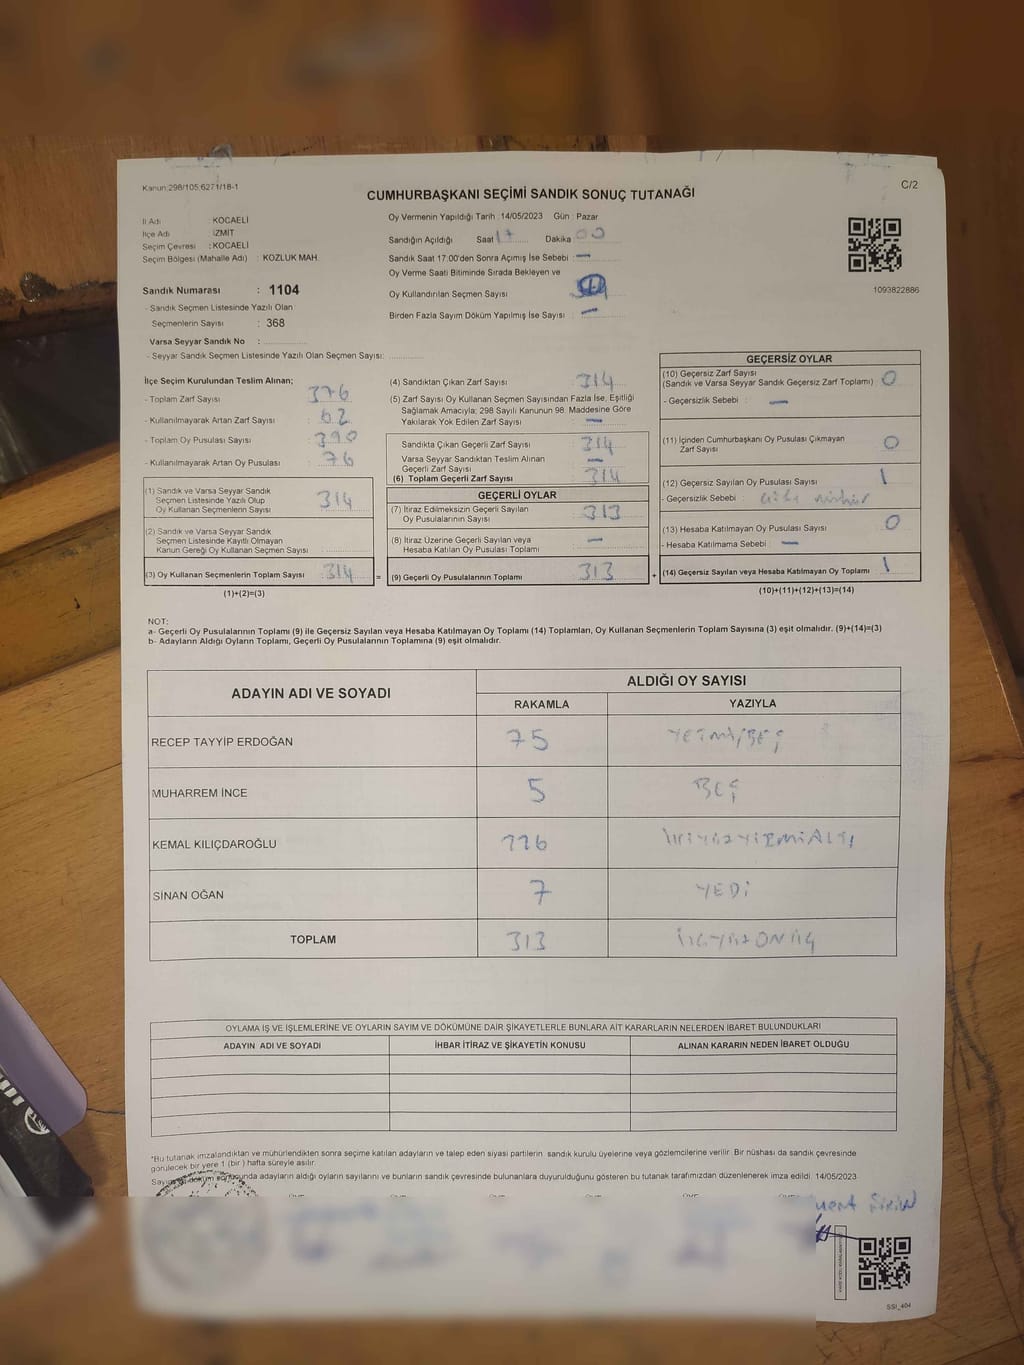 Kanun:298/105;6271/18-1
C/2
CUMHURBAŞKANI SEÇİMİ SANDIK SONUÇ TUTANAĞI
İl Adı : KOCAELİ
İlçe Adı : İZMİT
Seçim Çevresi : KOCAELİ
Seçim Bölgesi (Mahalle Adı) : KOZLUK MAH.
Oy Vermenin Yapıldığı Tarih : 14/05/2023 Gün : Pazar
Sandığın Açıldığı Saat 17 Dakika 00
Sandık Saat 17:00'den Sonra Açımış İse Sebebi : —
Oy Verme Saati Bitiminde Sırada Bekleyen ve
Oy Kullandırılan Seçmen Sayısı
Birden Fazla Sayım Döküm Yapılmış İse Sayısı : —
1093822886
Sandık Numarası : 1104
- Sandık Seçmen Listesinde Yazılı Olan
Seçmenlerin Sayısı : 368
Varsa Seyyar Sandık No :
- Seyyar Sandık Seçmen Listesinde Yazılı Olan Seçmen Sayısı:
İlçe Seçim Kurulundan Teslim Alınan;
- Toplam Zarf Sayısı : 376
- Kullanılmayarak Artan Zarf Sayısı : 62
- Toplam Oy Pusulası Sayısı : 390
- Kullanılmayarak Artan Oy Pusulası : 76
(1) Sandık ve Varsa Seyyar Sandık
Seçmen Listesinde Yazılı Olup
Oy Kullanan Seçmenlerin Sayısı : 314
(2) Sandık ve Varsa Seyyar Sandık
Seçmen Listesinde Kayıtlı Olmayan
Kanun Gereği Oy Kullanan Seçmen Sayısı :
(3) Oy Kullanan Seçmenlerin Toplam Sayısı : 314 =
(1)+(2)=(3)
(4) Sandıktan Çıkan Zarf Sayısı : 314
(5) Zarf Sayısı Oy Kullanan Seçmen Sayısından Fazla İse, Eşitliği
Sağlamak Amacıyla; 298 Sayılı Kanunun 98. Maddesine Göre
Yakılarak Yok Edilen Zarf Sayısı : —
Sandıkta Çıkan Geçerli Zarf Sayısı : 314
Varsa Seyyar Sandıktan Teslim Alınan
Geçerli Zarf Sayısı : —
(6) Toplam Geçerli Zarf Sayısı : 314
GEÇERLİ OYLAR
(7) İtiraz Edilmeksizin Geçerli Sayılan
Oy Pusulalarının Sayısı : 313
(8) İtiraz Üzerine Geçerli Sayılan veya
Hesaba Katılan Oy Pusulası Toplamı : —
(9) Geçerli Oy Pusulalarının Toplamı : 313 +
GEÇERSİZ OYLAR
(10) Geçersiz Zarf Sayısı
(Sandık ve Varsa Seyyar Sandık Geçersiz Zarf Toplamı) : 0
- Geçersizlik Sebebi : —
(11) İçinden Cumhurbaşkanı Oy Pusulası Çıkmayan
Zarf Sayısı : 0
(12) Geçersiz Sayılan Oy Pusulası Sayısı : 1
- Geçersizlik Sebebi :
(13) Hesaba Katılmayan Oy Pusulası Sayısı : 0
- Hesaba Katılmama Sebebi : —
(14) Geçersiz Sayılan veya Hesaba Katılmayan Oy Toplamı : 1
(10)+(11)+(12)+(13)=(14)
NOT:
a- Geçerli Oy Pusulalarının Toplamı (9) ile Geçersiz Sayılan veya Hesaba Katılmayan Oy Toplamı (14) Toplamları, Oy Kullanan Seçmenlerin Toplam Sayısına (3) eşit olmalıdır. (9)+(14)=(3)
b- Adayların Aldığı Oyların Toplamı, Geçerli Oy Pusulalarının Toplamına (9) eşit olmalıdır.
ADAYIN ADI VE SOYADI ALDIĞI OY SAYISI
RAKAMLA YAZIYLA
RECEP TAYYİP ERDOĞAN 75 YETMİŞBEŞ
MUHARREM İNCE 5 BEŞ
KEMAL KILIÇDAROĞLU 226 İKİYÜZYİRMİALTI
SİNAN OĞAN 7 YEDİ
TOPLAM 313 ÜÇYÜZONÜÇ
OYLAMA İŞ VE İŞLEMLERİNE VE OYLARIN SAYIM VE DÖKÜMÜNE DAİR ŞİKAYETLERLE BUNLARA AİT KARARLARIN NELERDEN İBARET BULUNDUKLARI
ADAYIN ADI VE SOYADI İHBAR İTİRAZ VE ŞİKAYETİN KONUSU ALINAN KARARIN NEDEN İBARET OLDUĞU
*Bu tutanak imzalandıktan ve mühürlendikten sonra seçime katılan adayların ve talep eden siyasi partilerin sandık kurulu üyelerine veya gözlemcilerine verilir. Bir nüshası da sandık çevresinde
görülecek bir yere 1 (bir) hafta süreyle asılır.
Sayım döküm sonucunda adayların aldığı oyların sayılarını ve bunların sandık çevresinde bulunanlara duyurulduğunu gösteren bu tutanak tarafımızdan düzenlenerek imza edildi. 14/05/2023
SSI_404